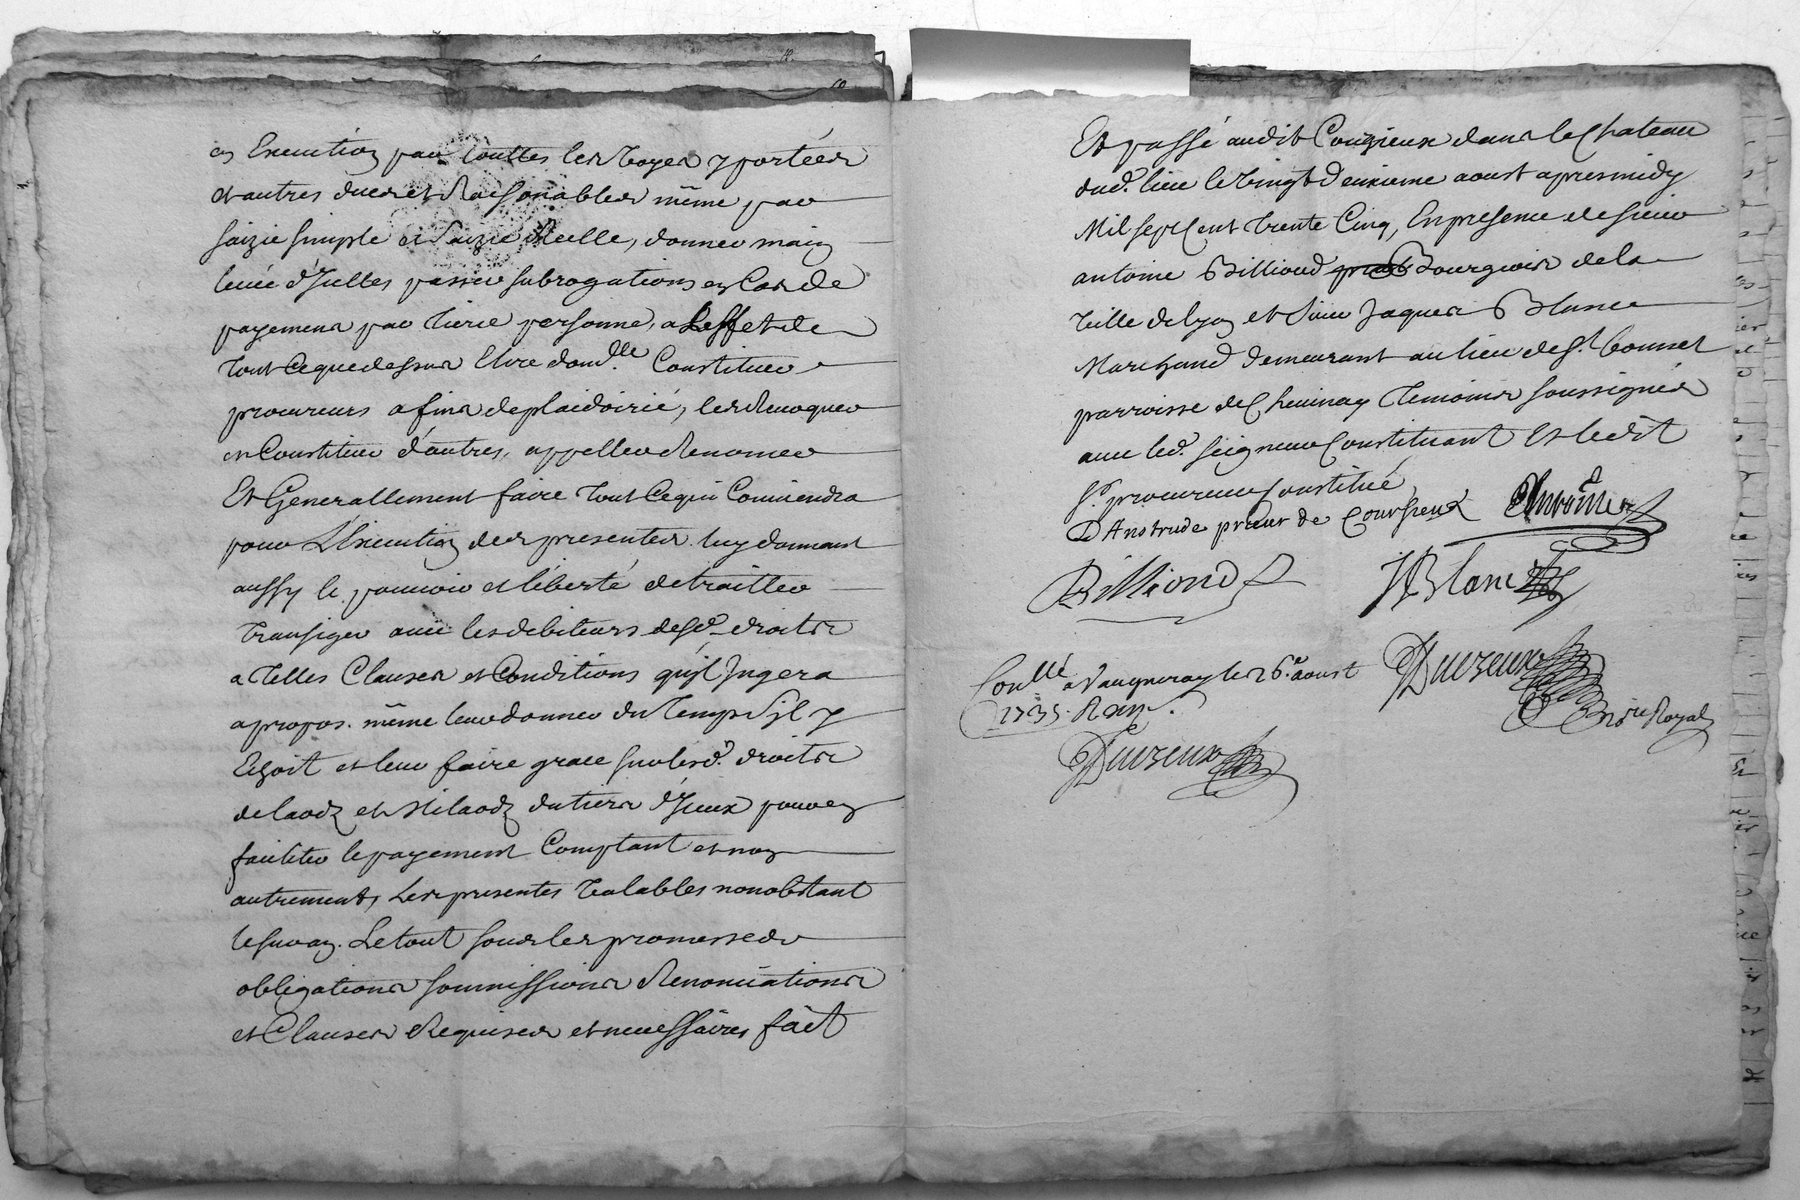 en Execution par touttes les voyes y portées
et autres dues et Raisonnables même par
saizie simple et saizie Reelle, donner main
levée d'Icelles passer subrogations en Cas de
payemens par tierce personne, a Leffet de
tout Ceque dessus Elire domlle. Constituer
procureurs a fins de plaidoirié, les Revoquer
en Constituer d'autres, appeller Renoncer
Et Generallement faire tout Cequi Conviendra
pour L'Execution des presentes. luy donnant
aussy le pouvoir et liberté de traitter
transiger avec les debiteurs desd. droits
a telles Clauses et Conditions qu'il Jugera
apropos. même leur donner du temps s'il y
Echoit et leur faire grace sur lesd. droits
de laods et milaods du tiers d'Iceux pour en
faciliter le payement Comptant et non
autrement, Les presentes valables nonobstant
le suran. Le tout sous les promesses
obligations soumissions Renonciations
et Clauses Requises et necessaires fait
Et passé audit Courzieux dans le Chateau
dud. lieu le vingt deuxieme aoust apres midy
Mil sept Cent trente Cinq, En presence de sieur
antoine Billioud Bourgeois de la
ville de lyon et sieur Jaques Blanc
Marchand demeurant au lieu de St. bonnet
parroisse de Chevinay temoins soussignés
avec led. seigneur Constituant Et ledit
sr. procureur Constitué
D'Anstrude prieur de Coursieux
Billioud
JBlanc
Conllé a Vaugneray le 26e. aoust
1735. R
Duvzeux
Nore Royal
Duvzeux